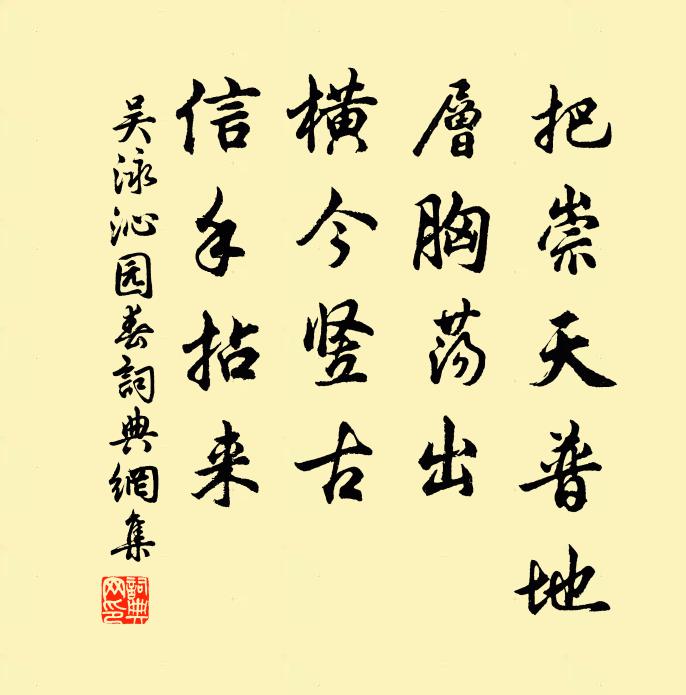 把崇天普地
層胸荡出
横今竖古
信手拈来
吴泳沁园春詞典網集
詞典网印